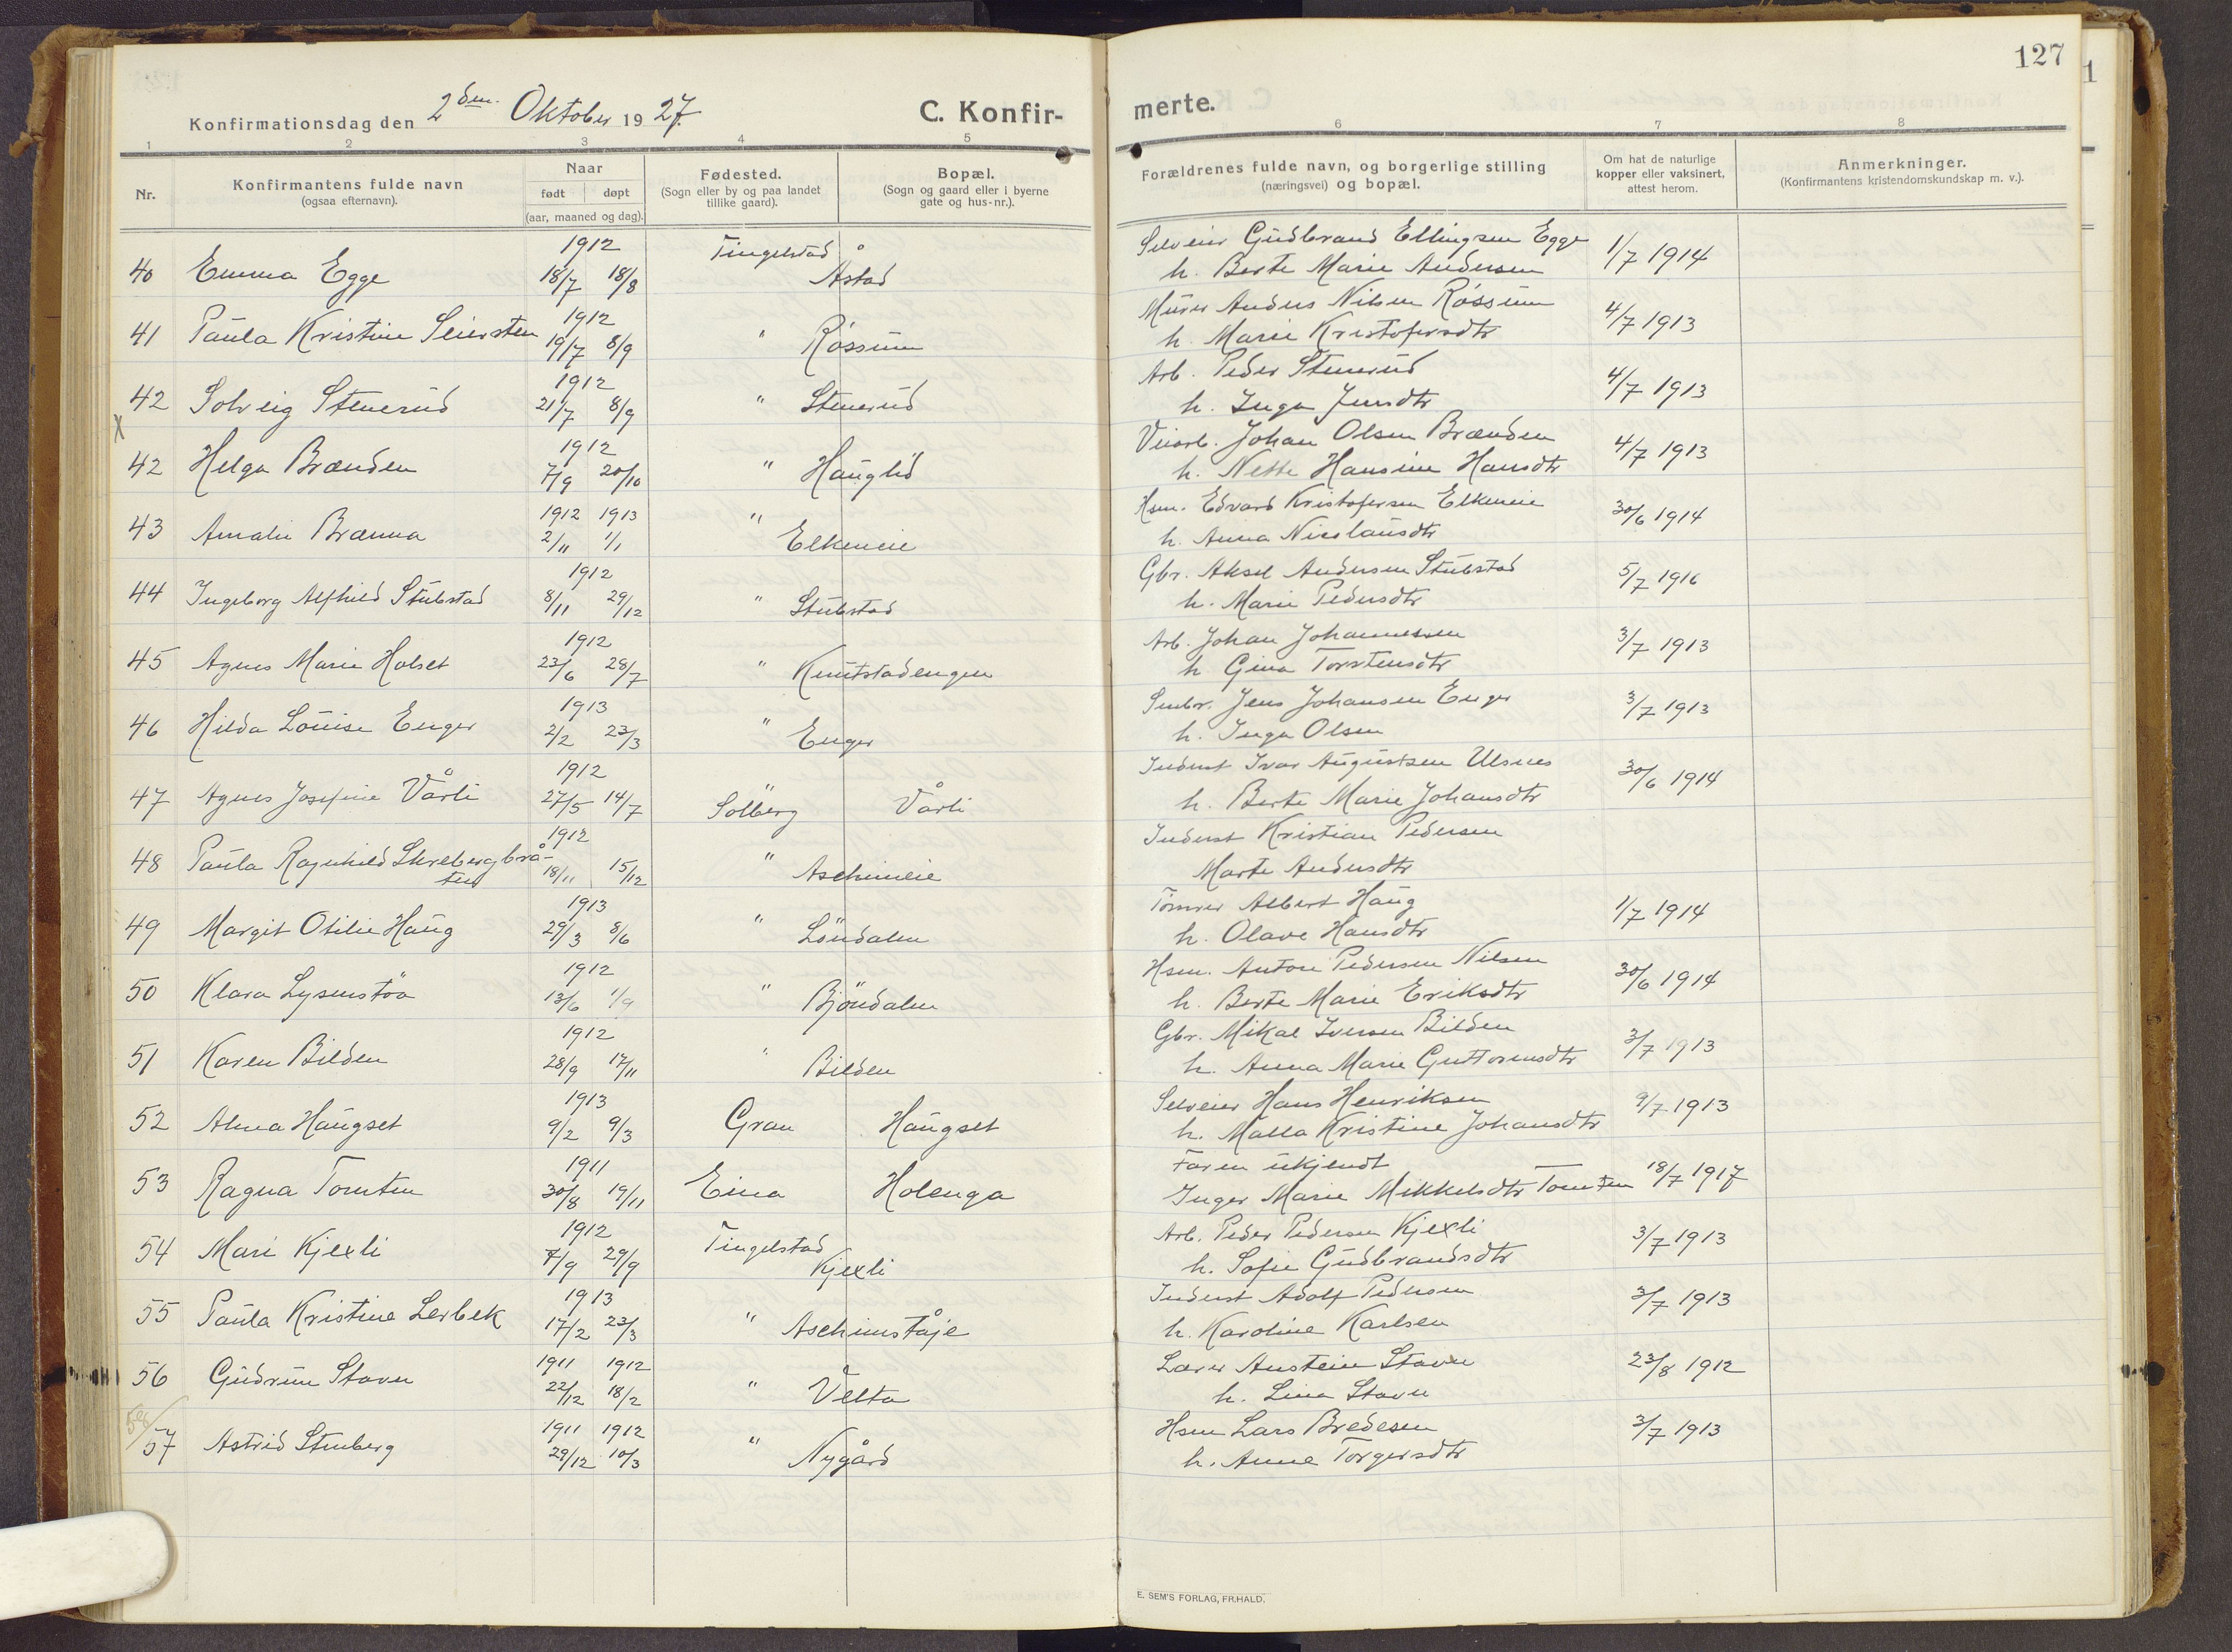 127
Konfirmationsdag den 2den Oktober 1927.
C. Konfir-merte.
1 2 3 4 5 6 7 8
Nr.
Konfirmantens fulde navn
(ogsaa efternavn).
Naar
født døpt
(aar, maaned og dag).
Fødested.
(Sogn eller by og paa landet
tillike gaard).
Bopæl.
(Sogn og gaard eller i byerne
gate og hus-nr.).
Forældrenes fulde navn, og borgerlige stilling
(næringsvei) og bopæl.
Om hat de naturlige
kopper eller vaksinert,
attest herom.
Anmerkninger.
(Konfirmantens kristendomskundskap m. v.).
1912 Tingelstad Selveier Gudbrand Ellingsen Egge
40 Emma Egge 18/7 18/8 Åstad h. Berte Marie Andersen 1/7 1914
1912 Murer Anders Nilsen Røssum
41 Paula Kristine Seiersten 19/7 8/9 " Røssum h. Marie Kristofersdtr 4/7 1913
1912 Arb. Peder Stenerud
42 Solveig Stenerud 21/7 8/9 " Stenerud h. Inga Jensdtr 4/7 1913
x
1912 Veiarb. Johan Olsen Brænden
42 Helga Brænden 7/9 20/10 " Hauglid h. Nette Hansine Hansdtr 4/7 1913
1912 1913 Hsm. Edvard Kristofersen Elkeneie
43 Amalie Brænna 2/11 1/1 " Elkeneie h. Anna Nicolausdtr 30/6 1914
1912 Gbr. Aksel Andersen Stubstad
44 Ingeborg Alfhild Stubstad 8/11 29/12 " Stubstad h. Marie Pedersdtr 5/7 1916
1912 Arb. Johan Johannessen
45 Agnes Marie Holset 23/6 28/7 " Knutstadengen h. Gina Torstensdtr 3/7 1913
1913 Smbr. Jens Johansen Enger
46 Hilda Louise Enger 2/2 23/3 " Enger h. Inga Olsen 3/7 1913
1912 Inderst Ivar Augustsen Ulsnes
47 Agnes Josefine Vårli 27/5 14/7 Sölberg Vårli h. Berte Marie Johansdtr 30/6 1914
1912 Inderst Kristian Pedersen
48 Paula Ragnhild Skrebergbrå-
ten 18/11 15/12 " Aschimeie Marte Andersdtr
1913 Tømrer Albert Haug
49 Margit Otilie Haug 29/3 8/6 " Löndalen h. Olave Hansdtr 1/7 1914
1912 Hsm. Anton Pedersen Nilsen
50 Klara Lysenstöa 13/6 1/9 " Björndalen h. Berte Marie Eriksdtr 30/6 1914
1912 Gbr. Mikal Iversen Bilden
51 Karen Bilden 28/9 17/11 " Bilden h. Anna Marie Guttormsdtr 3/7 1913
1913 Selveier Hans Henriksen
52 Alma Haugset 9/2 9/3 Gran Haugset h. Malla Kristine Johansdtr 9/7 1913
1911 Faren ukjendt
53 Ragna Tomten 30/8 19/11 Eina Holenga Inger Marie Mikkelsdtr Tomten 18/7 1917
1912 Tingelstad Arb. Peder Pedersen Kjexli
54 Mari Kjexli 7/9 29/9 Kjexli h. Sofie Gudbrandsdtr 3/7 1913
1913 Inderst Adolf Pedersen
55 Paula Kristine Lerbek 17/2 23/3 " Aschimståje h. Karoline Karlsen 3/7 1913
1911 1912 Lærer Austein Stavn
56 Gudrun Stavn 22/12 18/2 " Velta h. Lina Stavn 23/8 1912
58/
1911 1912 Hsm Lars Bredesen
57 Astrid Stenberg 29/12 10/3 " Nygård h. Anne Torgersdtr 3/7 1913
E. SEM'S FORLAG, FR.HALD.